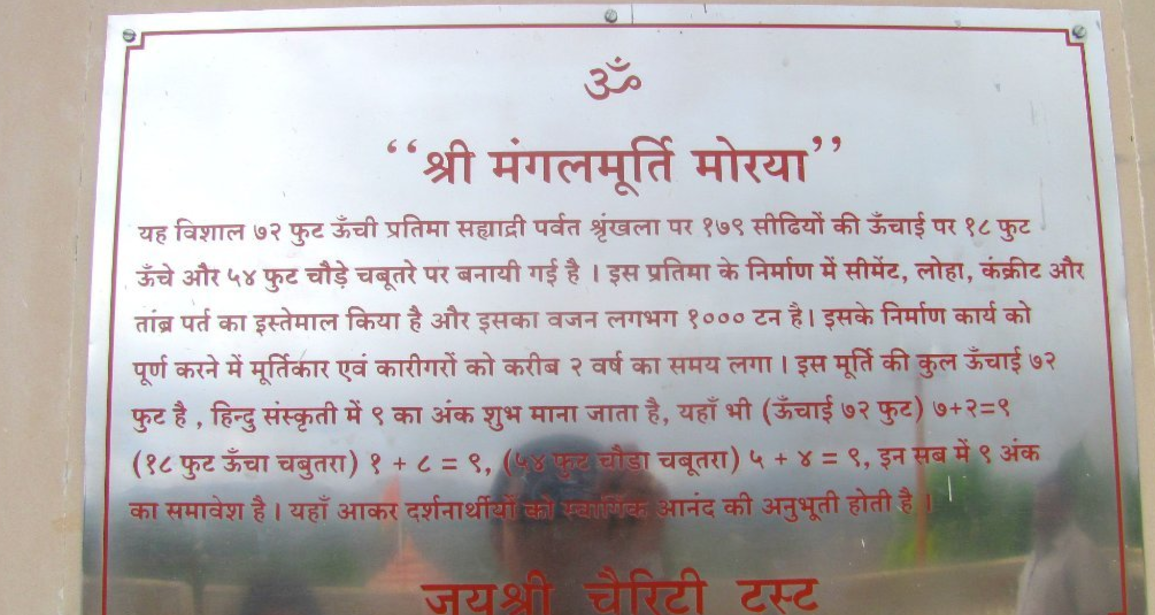 ॐ
“श्री मंगलमूर्ति मोरया”
यह विशाल ७२ फुट ऊँची प्रतिमा सह्याद्री पर्वत श्रृंखला पर १७९ सीढियों की ऊँचाई पर १८ फुट
ऊँचे और ५४ फुट चौड़े चबूतरे पर बनायी गई है । इस प्रतिमा के निर्माण में सीमेंट, लोहा, कंक्रीट और
तांब्र पर्त का इस्तेमाल किया है और इसका वजन लगभग १००० टन है। इसके निर्माण कार्य को
पूर्ण करने में मूर्तिकार एवं कारीगरों को करीब २ वर्ष का समय लगा । इस मूर्ति की कुल ऊँचाई ७२
फुट है , हिन्दु संस्कृती में ९ का अंक शुभ माना जाता है, यहाँ भी (ऊँचाई ७२ फुट) ७+२=९
(१८ फुट ऊँचा चबुतरा) १ + ८ = ९, (५४ फुट चौडा चबूतरा) ५ + ४ = ९, इन सब में ९ अंक
का समावेश है । यहाँ आकर दर्शनार्थीयों को स्वार्गिक आनंद की अनुभूती होती है ।
जयश्री चैरिटी टस्ट